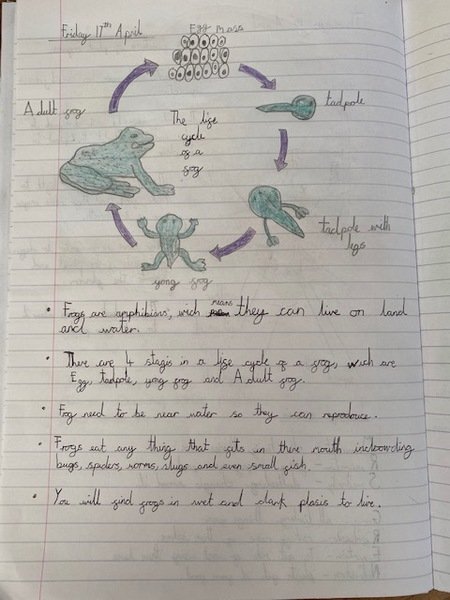 Friday 17th April
Egg mass
tadpole
Adult frog
The life
cycle
of a
frog
tadpole with
legs
yong frog
• Frogs are amphibians, wich means they can live on land
and water.
• There are 4 stagis in a life cycle of a frog, wich are
Egg, tadpole, yong frog and Adult frog.
• Frog need to be near water so they can reproduce.
• Frogs eat any thing that fits in there mouth inclowding
bugs, spiders, worms, slugs and even small fish.
• You will find frogs in wet and dark plasis to live.